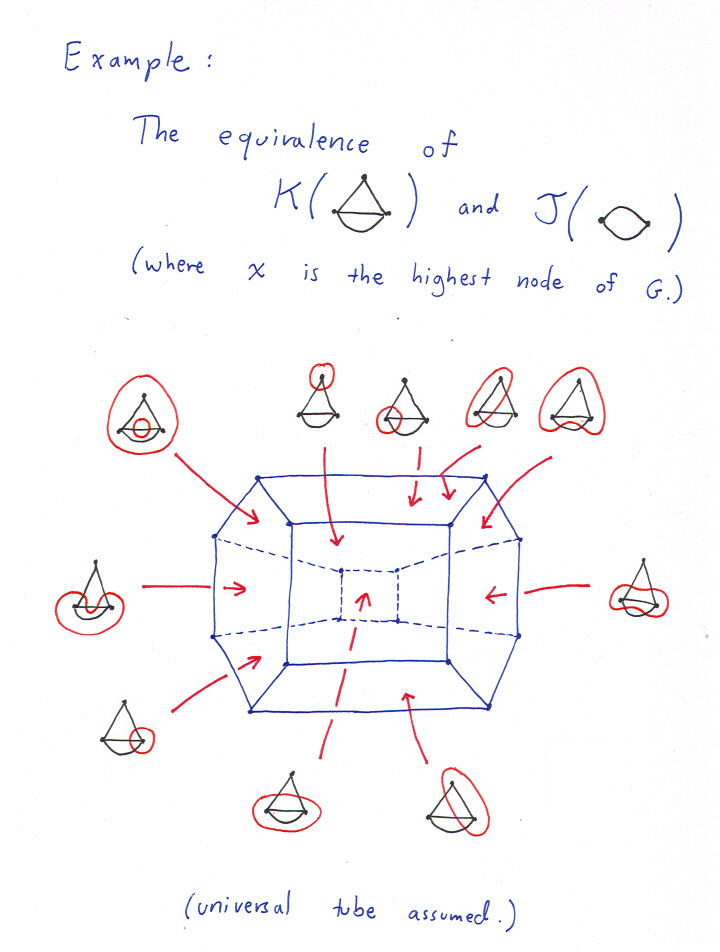 Example:
The equivalence of
K( ) and J( )
(where x is the highest node of G.)
(universal tube assumed.)